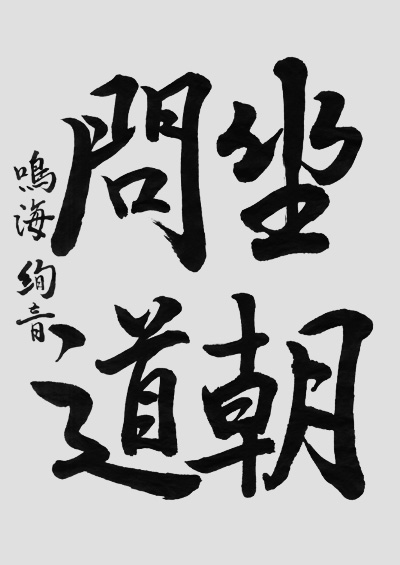 坐朝
問道
鳴海 絢音